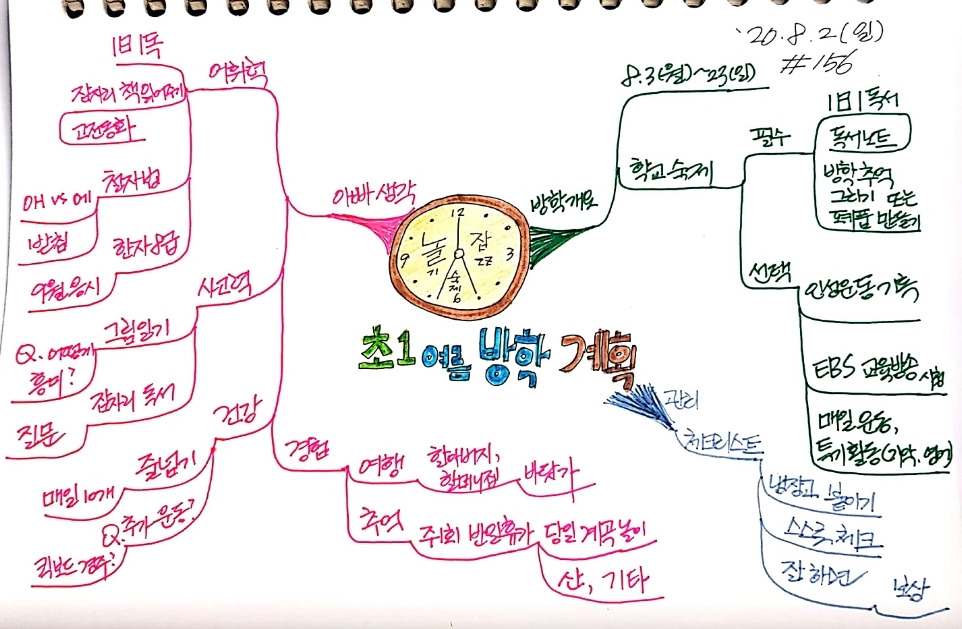 '20.8.2(일)
#156
초1 여름 방학 계획
12
3
6
9
놀기
잠
zz
숙제
방학개요
8.3(월)~23(일)
학교숙제
필수
1日1독서
독서노트
방학 추억
그리기 또는
작품 만들기
선택
인성운동기록
EBS 교육방송 시청
매일 운동,
특기활동(피아노, 영어)
관리
체크리스트
냉장고 붙이기
스스로 체크
잘하면
보상
아빠 생각
어휘력
1日1독
잠자리 책읽어주기
고전동화
철자법
애 vs 에
받침
한자8급
9월응시
사고력
그림일기
Q. 어떻게
흥미?
잠자리 독서
질문
건강
줄넘기
매일 10개
Q. 추가 운동?
퀵보드 경주?
경험
여행
할아버지,
할머니집
바닷가
추억
주1회 반일휴가
당일 계곡놀이
산, 기타